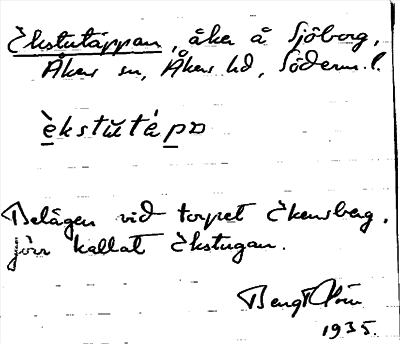 Ekstutäppan, åker å Sjöberg,
Åkers sn, Åkers hd, Söderm. l.
èkstŭtápα
Belägen vid torpet Ekensberg,
förr kallat Ekstugan.
Bengt
1935.